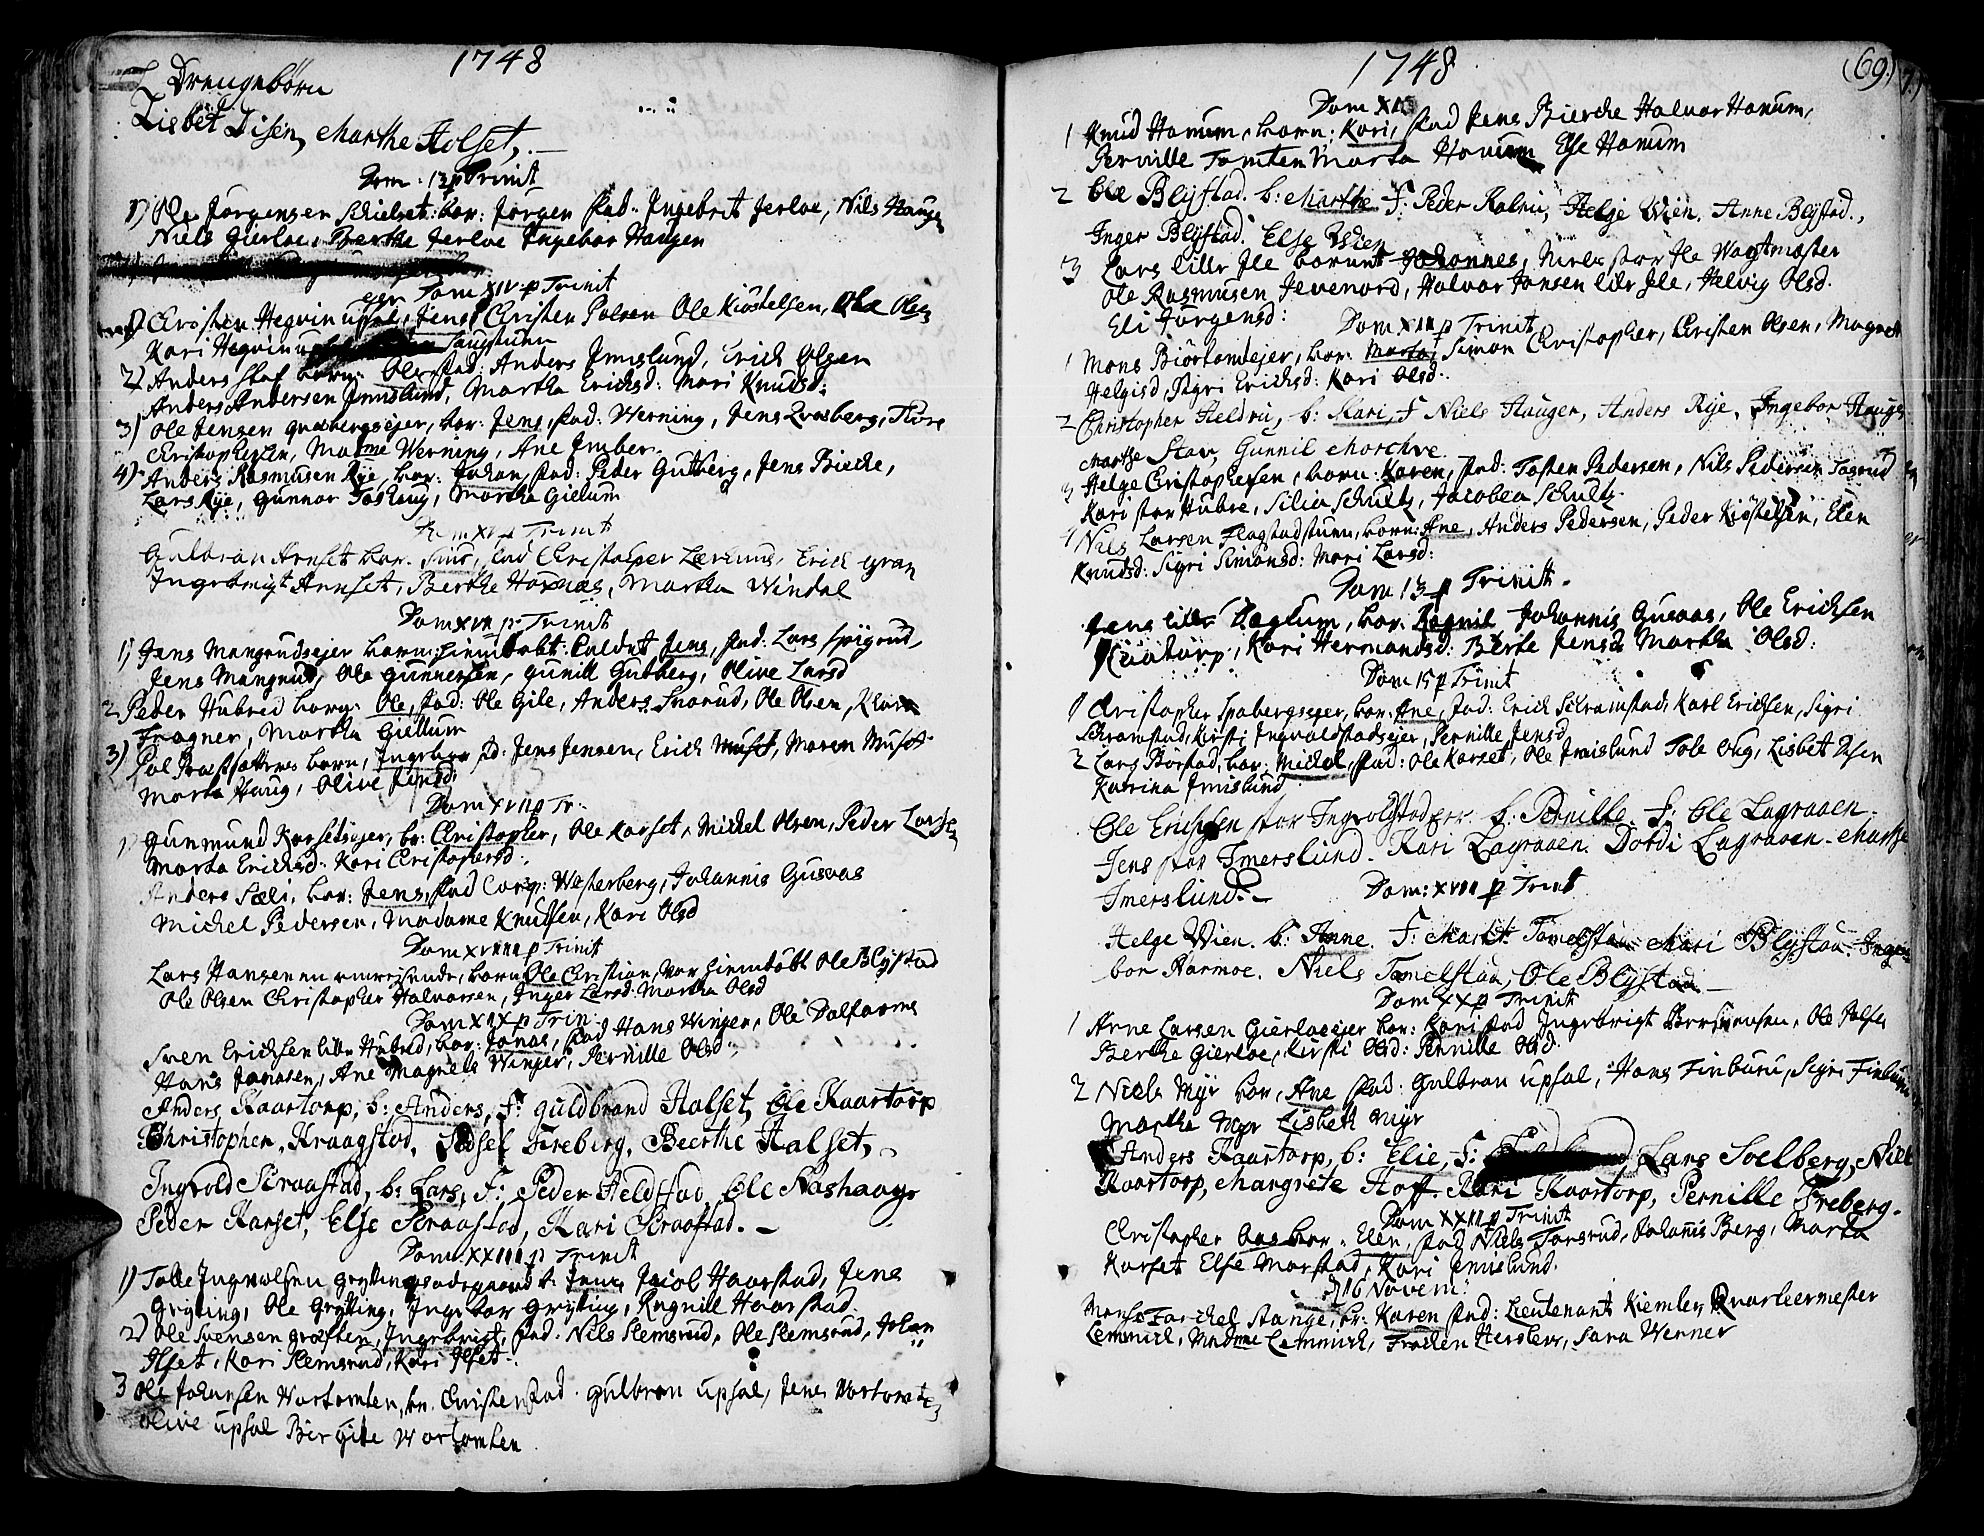 1748
Drengebørn
Lisbet Disen, Marthe Holset,
Dom: 13 p Trinit
1) Ole Jørgensen Skielset: bar: Jørgen fad: Ingebrit Jerloe, Nils Haugen
Niels Gierloe, Berthe Jerloe Ingebor Haugen
Dom XIV p Trinit
Christen Hegvin upsal, Jens, Christen Polsen Ole Kiøstelsen, Ole Olsen
Kari Hegvin
2) Anders Stof barn: Ole fad: Anders Imislund, Erich Olsen
Anders Andersen Imislund, Martha Ericksd: Mari Knudsd:
3) Ole Jensen Grabergsejer, bar: Jens, fad: Werning, Jens Qvasberg, Tore
Christophersen, Madme Werning, Ane Imber.
4) Anders Rasmusen Rye, bar: Johan, fad: Peder Gutberg, Jens Biecke,
Lars Rye, Gunnor Toshaug, Martha Giellum
Dom XV p Trinit
Gulbran Arnset bar. Siur, fad Christopher Lærlund, Erich gran
Ingebrigt Arnset, Berthe Hornæs, Martha Windal
Dom XVII p Trinit
1) Jens Mangrudsejer barn: hiemdøbt: kaldet Jens, fad: Lars Spigrud,
Jens Mangrud, Ole Gunnersen, Gunill Gutberg, Olive Larsd
2 Peder Hubred barn: Ole, fad: Ole Gile, Anders Snorud, Ole Olsen,
Fragner, Martha Giellum
3) Pol Præstsætternes barn, Ingebor fd: Jens Jensen, Erich Muset, Maren Muset
Marta Haug, Olive Jensd:
Dom XVII p Tr:
1) Gunmund Korsetsejer, br: Christopher, Ole Korset, Michel Olsen, Peder Larsen
Marta Ericksd: Kari Christophersd:
Anders Sæli, bar: Jens, fad Corp: Westerberg, Johannis Gusaas
Michel Pedersen, Madame Knudsen, Kari Olsd
Dom XVIIII p Trinit
Lars Hansen en omreisende, barn Ole Christian, var hiemdøbt Ole Blystad
Ole Olsen Christopher Halvorsen, Inger Larsd Martha Olsd
Dom XIX p Trin:
Sven Erichsen lille Hubred, bar: Jonas, fad Hans Winger, Ole Dalfarme
Hans Jonasen, Ane Magnele Winger, Pernille Olsd:
Anders Kaartorp, b: Anders, F: Guldbrand Halset, Ole Kaartorp
Christopher Kraagstad, Sidsel Freberg, Beerthe Halset,
Ingvold Skraastad, b: Lars, F: Peder Heldstad, Ole Nashaug
Peder Karset, Else Skraastad, Kari Skraastad.
Dom: XXIII p Trinit
1) Tolle Ingvolsen Gryttingsødegaard b: Jens, Jacob Haarstad, Jens
Gryting, Ole Grytting, Ingebor Gryting, Ragnill Haarstad
2) Ole Svensen Græsten, Ingebrigt, fad. Nils Slemsrud, Ole Slemsrud, Johan
Ilset, Kari Slemsrud, Kari Ilset.
3 Ole Johansen Wortomten, br. Christen fad. Gulbran Upsal, Jens Wortomten
Olive Upsal Birgitte Wortomten

1748
(69.)
Dom XII
1 Knud Honum, barn: Kari, fad Jens Biercke Halvor Honum,
Pernille Tomten Marta Honum Else Honum
2 Ole Blystad. b: Marthe F: Peder Kalrii, Helge Wien, Anne Blystad.,
Inger Blystad. Else Wien
3 Lars lille Ile barnet Johannes, Niels stor Ile Wagtmester
Ole Rasmusen Jevenord, Halvor Jonsen lille Ile, Helvig Olsd.
Eli Jørgensd:
Dom XII p Trinit
1 Mons Biørtomtejer, bar. Marta, Simon Christopher, Christen Olsen, Magnill
Helgisd, Sigri Ericksd: Kari Olsd.
2 Christopher Heldrii, b: Kari, F Niels Hauger, Anders Rye, Ingebor Haugen
Marthe Stav, Gunnil Morchve.
3 Helge Christophersen, barn: Karen, fad: Tosten Pedersen, Nils Pedersen Togrud
Kari stor Hubre, Silia Schultz, Jacobea Schultz.
4 Nils Larsen Flagstadstuen, barn: Ane, Anders Pedersen, Peder Kiøstelsen, Elen
Knudsd: Sigri Simonsd: Mari Larsd:
Dom 13 p Trinit.
Jens lille Dæglum, bar. Ragnil Johannis Gusaas, Ole Erichsen
Kaatorp, Kari Hermandsd: Berte Jensd Martha Olsd:
Dom 15 p Trinit
1 Christopher Spabergsejer, bar: Ane, fad: Erich Schramstad, Karl Erichsen, Sigri
Schramstad, Kirsti Ingvoldstadsejer, Pernille Jensd
2 Lars Børstad, bar: Michel, fad: Ole Korset, Ole Imislund Tole Aug, Lisbet Disen
Katrina Imislund
Ole Erichsen stor Ingvolstad b. Pernille. F: Ole Lagraaen
Jens stor Imerslund. Kari Lagraaen. Dordi Lagraaen. Marthe
Imerslund.
Dom: XVIII p Trinit
Helge Wien. b: Anne. F: Marit Tomelstau Mari Blystau. Inge-
bor Kormoe. Niels Tomelstau, Ole Blystad
Dom XX p Trinit
1 Arne Larsen Gierloeejer bar: Kari fad Ingebrigt Børresensen, Ole Polsen
Berthe Gierloe, Kirsti Olsd: Pernille Olsd.
2 Niels Myr bar, Ane fad: Gulbran Upsal, Hans Finburu, Sigri Finburu
Martha Myr Lisbeth Myr
Anders Kaartorp, b: Elie, F: Lars Soelberg, Niels
Kaartorp, Mangrete Hoff. Kari Kaartorp, Pernille Freberg.
Dom XXII p Trinit
Christopher Aas bar: Elen, fad Niels Torsrud, Johanis Berg, Marta
Korset Else Morstad, Kari Imislund.
d 16 Novem:
Stange, br: Karen fad: Lieutenant Kiemler, Qvarteermester
Lemmich, Madme Lemmich, Frøken Hersleb, Sara Werner